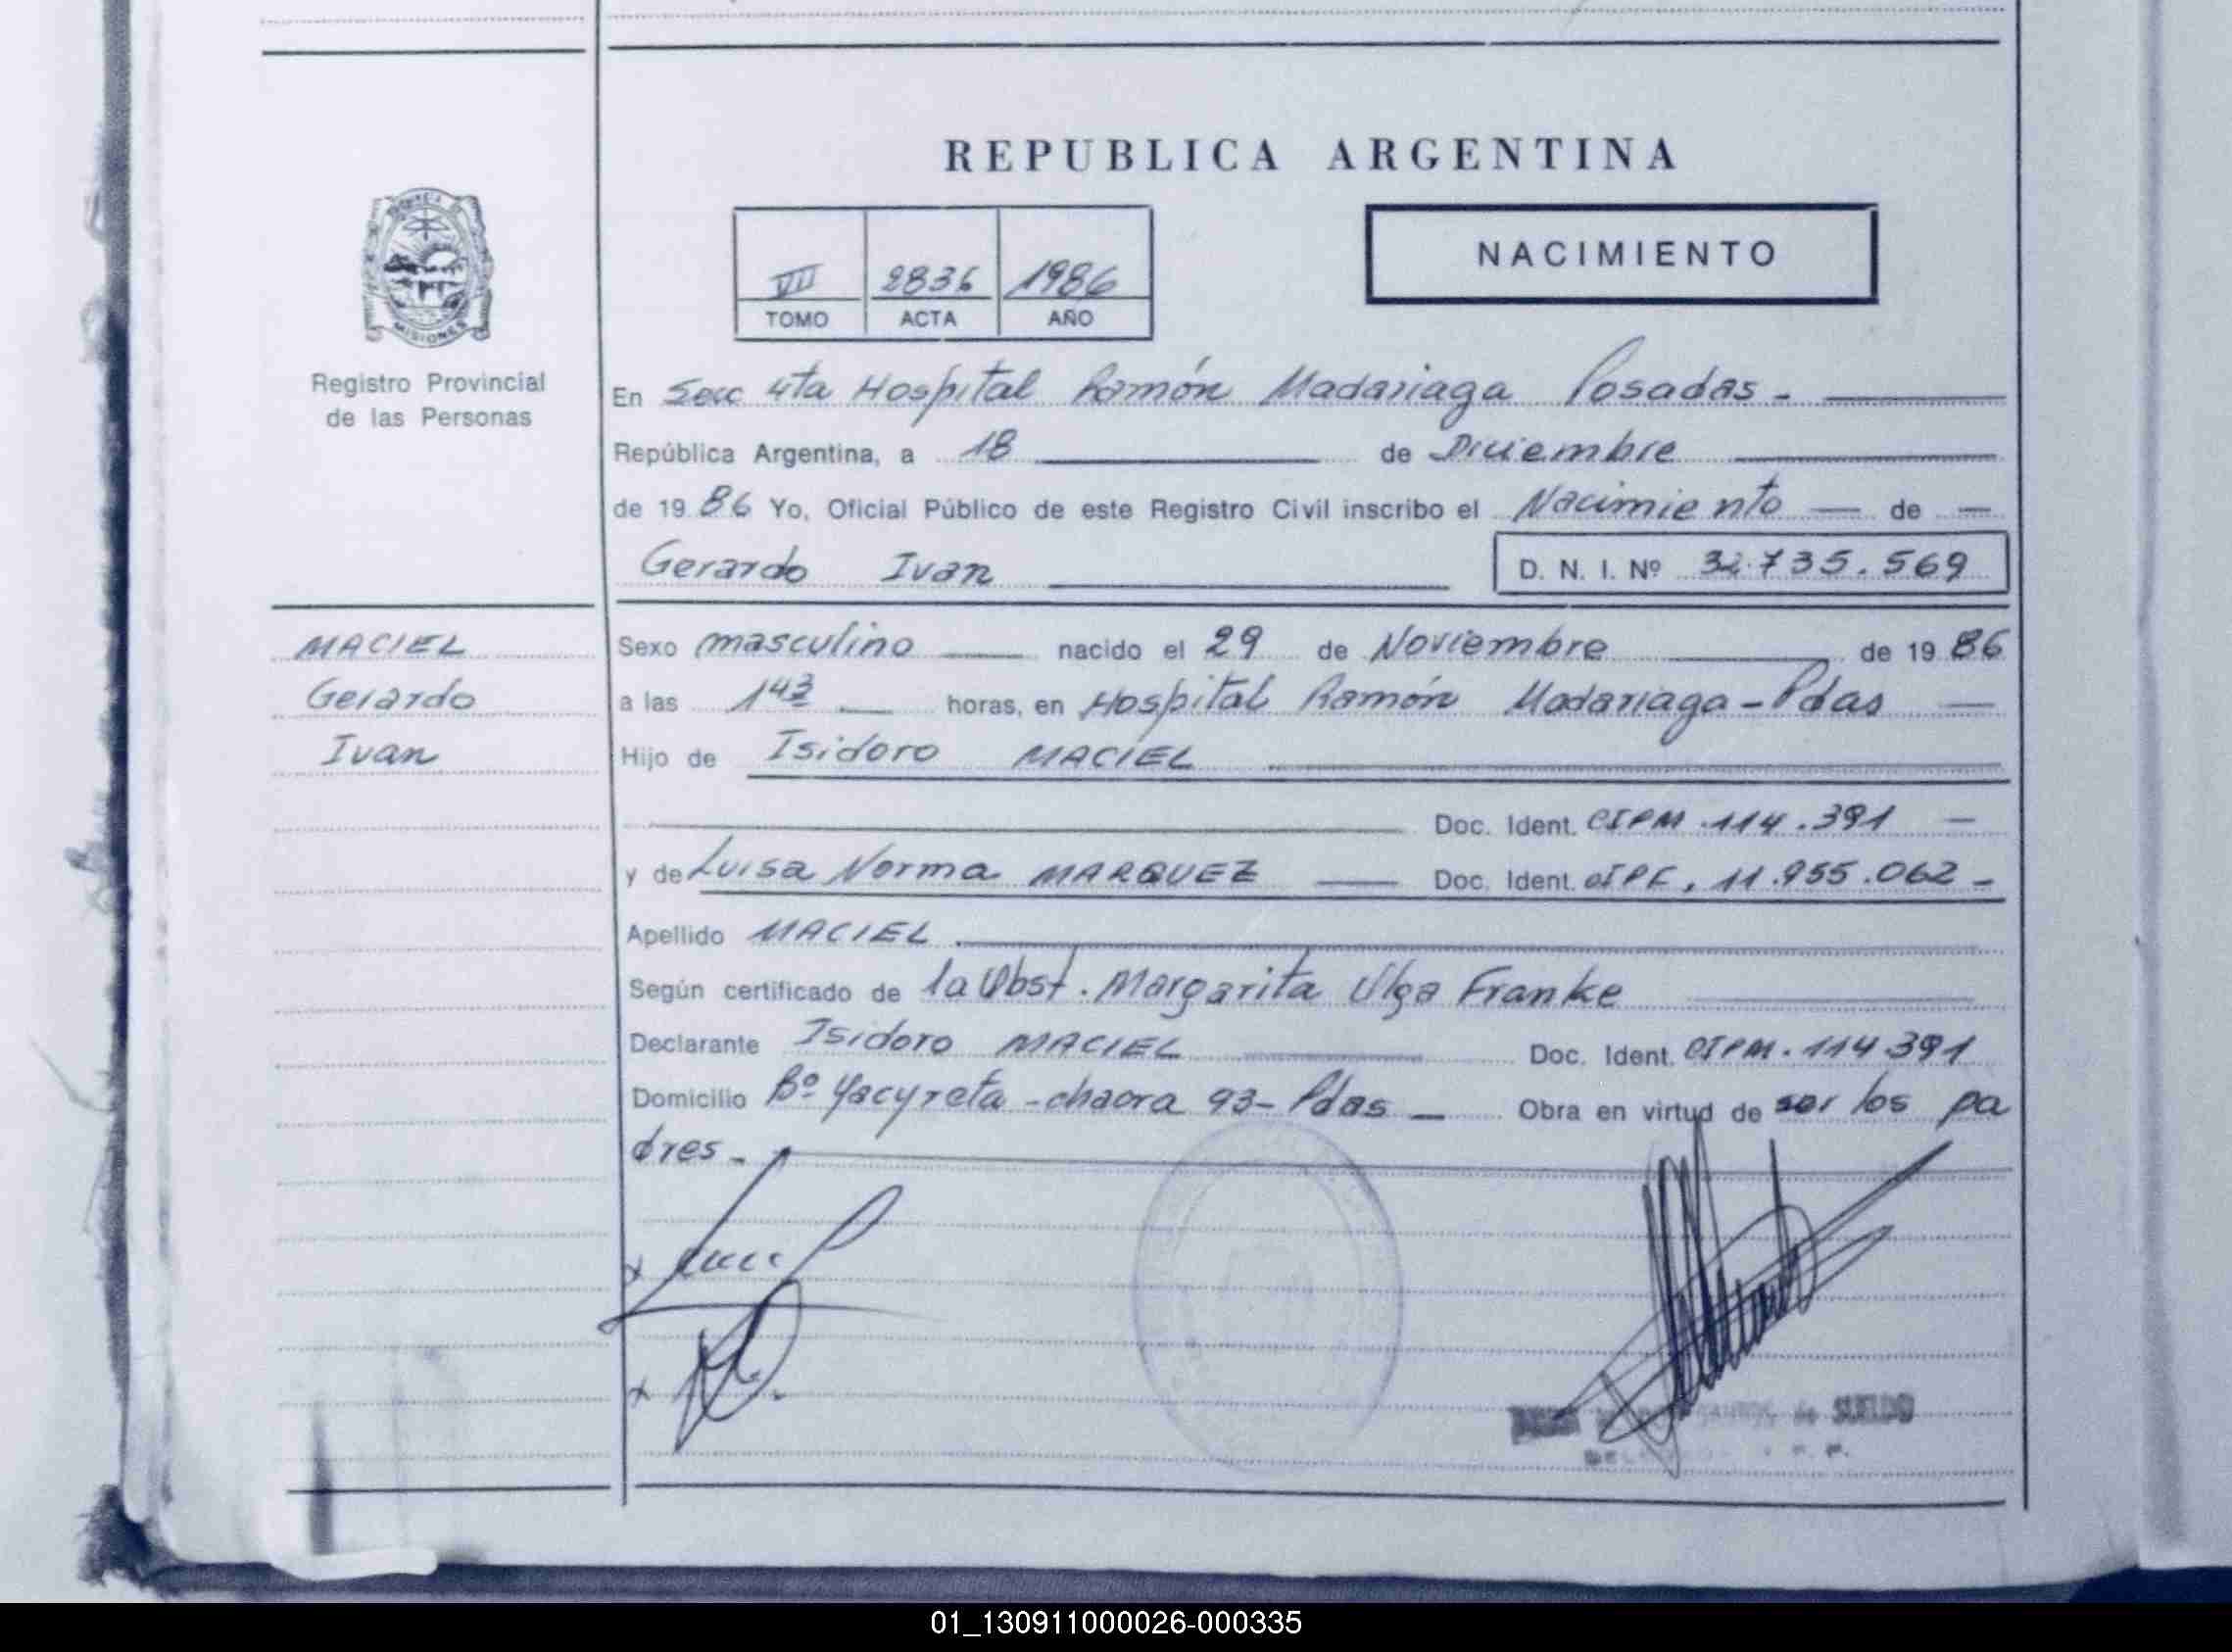 REPUBLICA ARGENTINA
NACIMIENTO
VII 2836 1986
TOMO ACTA AÑO
MISIONES
Registro Provincial
de las Personas
En Secc 4ta Hospital Ramón Madariaga Posadas -
República Argentina, a 18 de Diciembre
de 1986 Yo, Oficial Público de este Registro Civil inscribo el Nacimiento — de —
Gerardo Ivan D. N. I. Nº 32.735.569
MACIEL
Gerardo
Ivan
Sexo masculino nacido el 29 de Noviembre de 1986
a las horas, en Hospital Ramón Madariaga - Pdas —
Hijo de Isidoro MACIEL
Doc. Ident. CIPM .114.391 —
y de Luisa Norma MARQUEZ Doc. Ident. 11.955.062 -
Apellido MACIEL
Según certificado de la Obst. Margarita Olga Franke
Declarante Isidoro MACIEL Doc. Ident. CIPM. 114391
Domicilio Bº Yacyreta - chacra 93 - Pdas — Obra en virtud de ser los pa
dres -
SANTOS de SUELDO
01_130911000026-000335